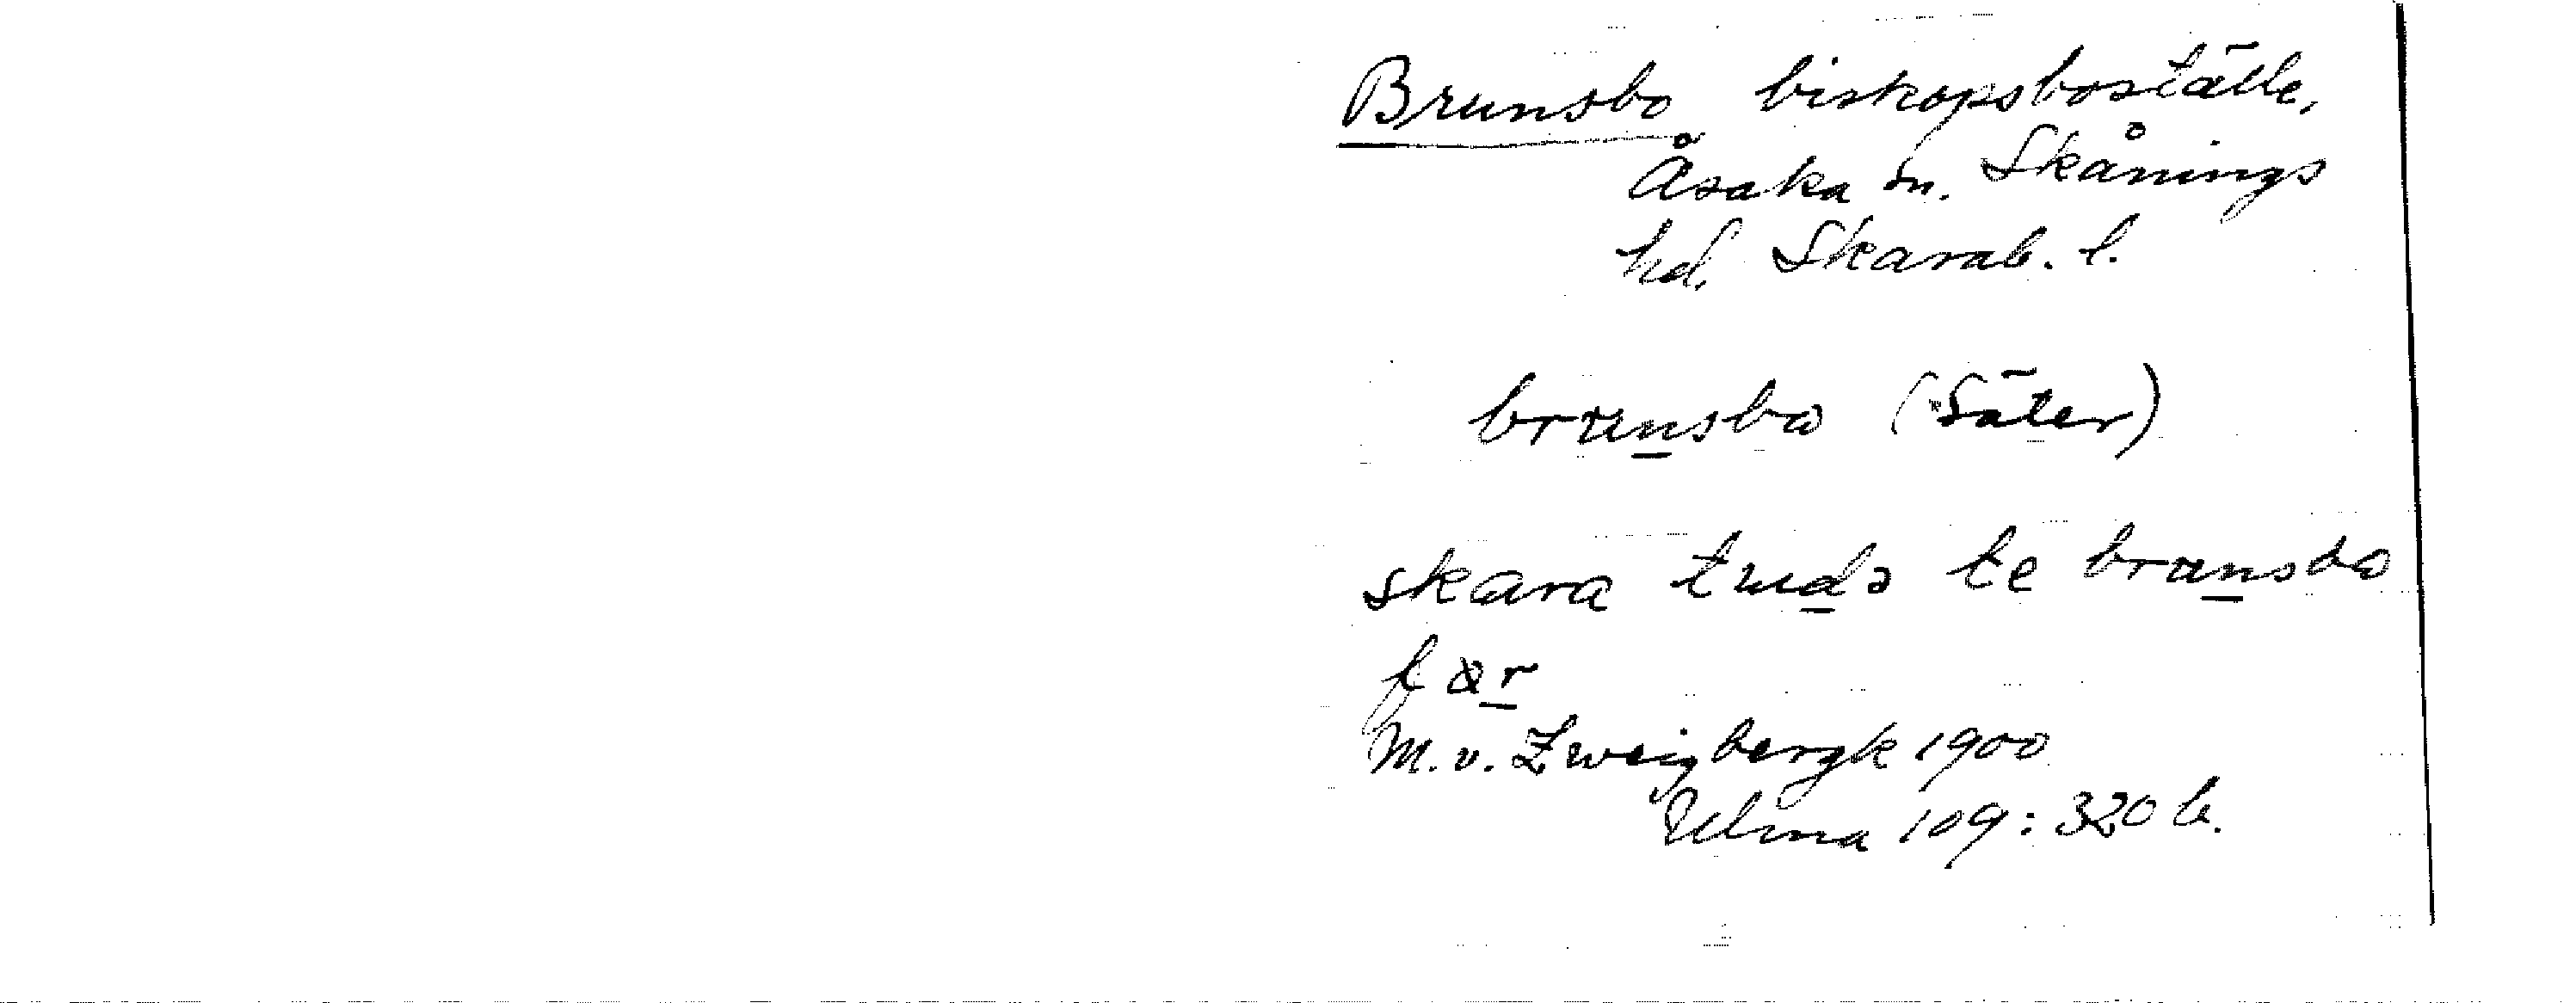 Brunsbo biskopsboställe,
Åsaka sn. Skånings
hd. Skarab. l.
brunsbo (Säter)
skara te brunsbo
M. v. Zweigbergk 1900
Ulma 109:320 b.